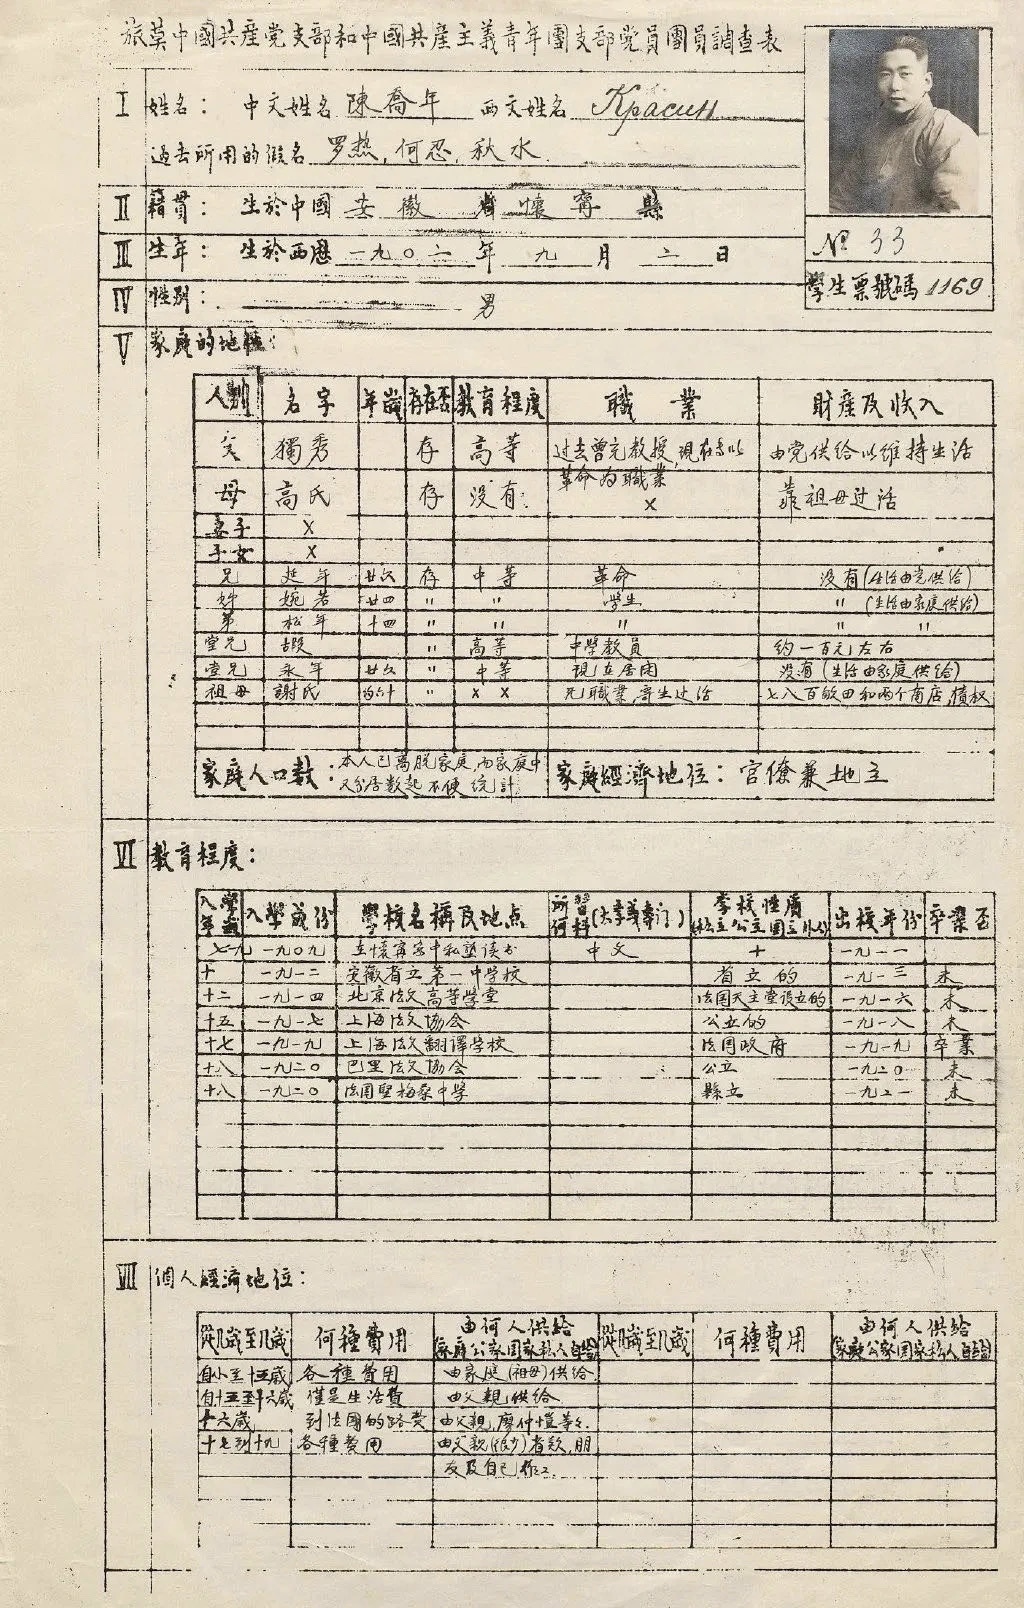 旅莫中國共產党支部和中國共產主義青年團支部党員團員調查表
I 姓名： 中文姓名 陳喬年 西文姓名 Красин
過去所用的假名 罗热，何忍，秋水
II 籍貫： 生於中國 安徽 省 懷寧 縣
III 生年： 生於西歷 一九〇二 年 九 月 二 日
IV 性别： 男
№ 33
學生票號碼 1169
V 家庭的地位：
人别 名字 年歲 存在否 教育程度 職業 財產及收入
父 獨秀 存 高等 过去曾充教授，現在专以革命为職業 由党供给以維持生活
母 高氏 存 没有 × 靠祖母过活
妻子 ×
子女 ×
兄 延年 廿六 存 中等 革命 没有（生活由党供给）
姊 婉若 廿四 〃 〃 学生 〃（生活由家庭供给）
弟 松年 十四 〃 〃 〃 〃 〃
堂兄 遐 〃 高等 中學教員 约一百元左右
堂兄 永年 廿六 〃 中等 現在居闲 没有（生活由家庭供给）
祖母 謝氏 约六十 〃 × × 无職業，寄生过活 七八百畝田和两个商店，債权
家庭人口數： 本人已离脱家庭，而家庭中又分居数起不便统計 家庭經濟地位：官僚兼地主
VI 教育程度：
入學年歲 入學年份 學校名稱及地点 所習何科（大学義專门） 学校性質（私立公立国立外人） 出校年份 卒業否
七—九 一九〇九 在懷寧家中私塾读书 中文 + 一九一一
十 一九一二 安徽省立第一中学校 省立的 一九一三 未
十二 一九一四 北京法文高等学堂 法国天主堂设立的 一九一六 未
十五 一九一七 上海法文協会 公立的 一九一八 未
十七 一九一九 上海法文翻譯学校 法国政府 一九一九 卒業
十八 一九二〇 巴里法文協会 公立 一九二〇 未
十八 一九二〇 法国聖梅桑中学 縣立 一九二一 未
VII 個人經濟地位：
從几歲至几歲 何種費用 由何人供给（家庭公家国家私人自给） 從几歲至几歲 何種費用 由何人供给（家庭公家国家私人自给）
自小至十五歲 各種費用 由家庭（祖母）供给
自十五至十六歲 僅是生活費 由父親供给
十六歲 到法國的路費 由父親，廖仲愷等
十七到十九 各種費用 由父親（很少）者欵，朋友及自己作工